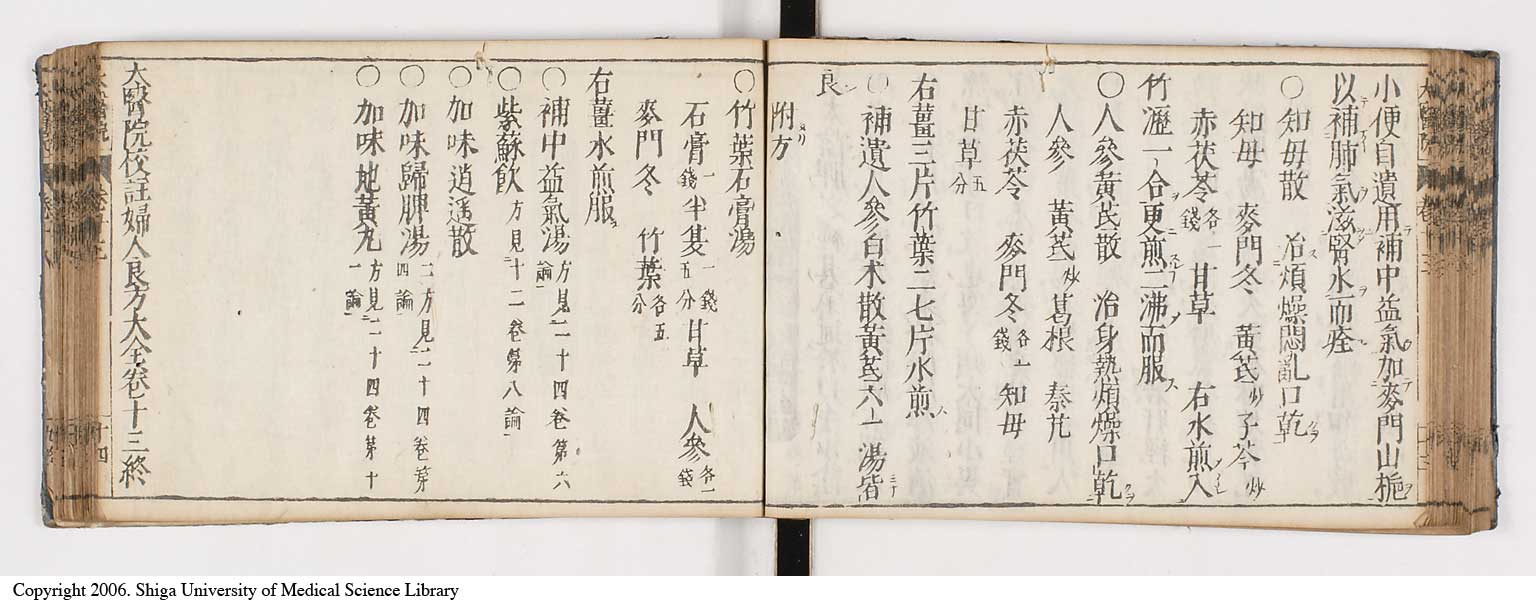 小便自遺用補中益氣加麥門山梔
以補肺氣滋腎水而痊
〇知毋散 治煩燥悶亂口乾
知毋 麥門冬 黃芪炒 子芩炒
赤茯苓各一錢 甘草 右水煎入
竹瀝一合更煎二沸而服
〇人參黃芪散 治身熱煩燥口乾
人參 黃芪炒 葛根 秦艽
赤茯苓 麥門冬各一錢 知毋
甘草五分
右薑三片竹葉二七片水煎
〇補遺人參白术散黃芪六一湯皆
良
附方
〇竹葉石膏湯
石膏一錢 半夏一錢五分 甘草 人參各一錢
麥門冬 竹葉各五分
右薑水煎服
〇補中益氣湯方見二十四卷第六論
〇紫蘇飲方見十二卷第八論
〇加味逍遥散
〇加味歸脾湯二方見二十四卷第四論
〇加味地黃丸方見二十四卷第十一論
大醫院校註婦人良方大全卷十三終
Copyright 2006. Shiga University of Medical Science Library